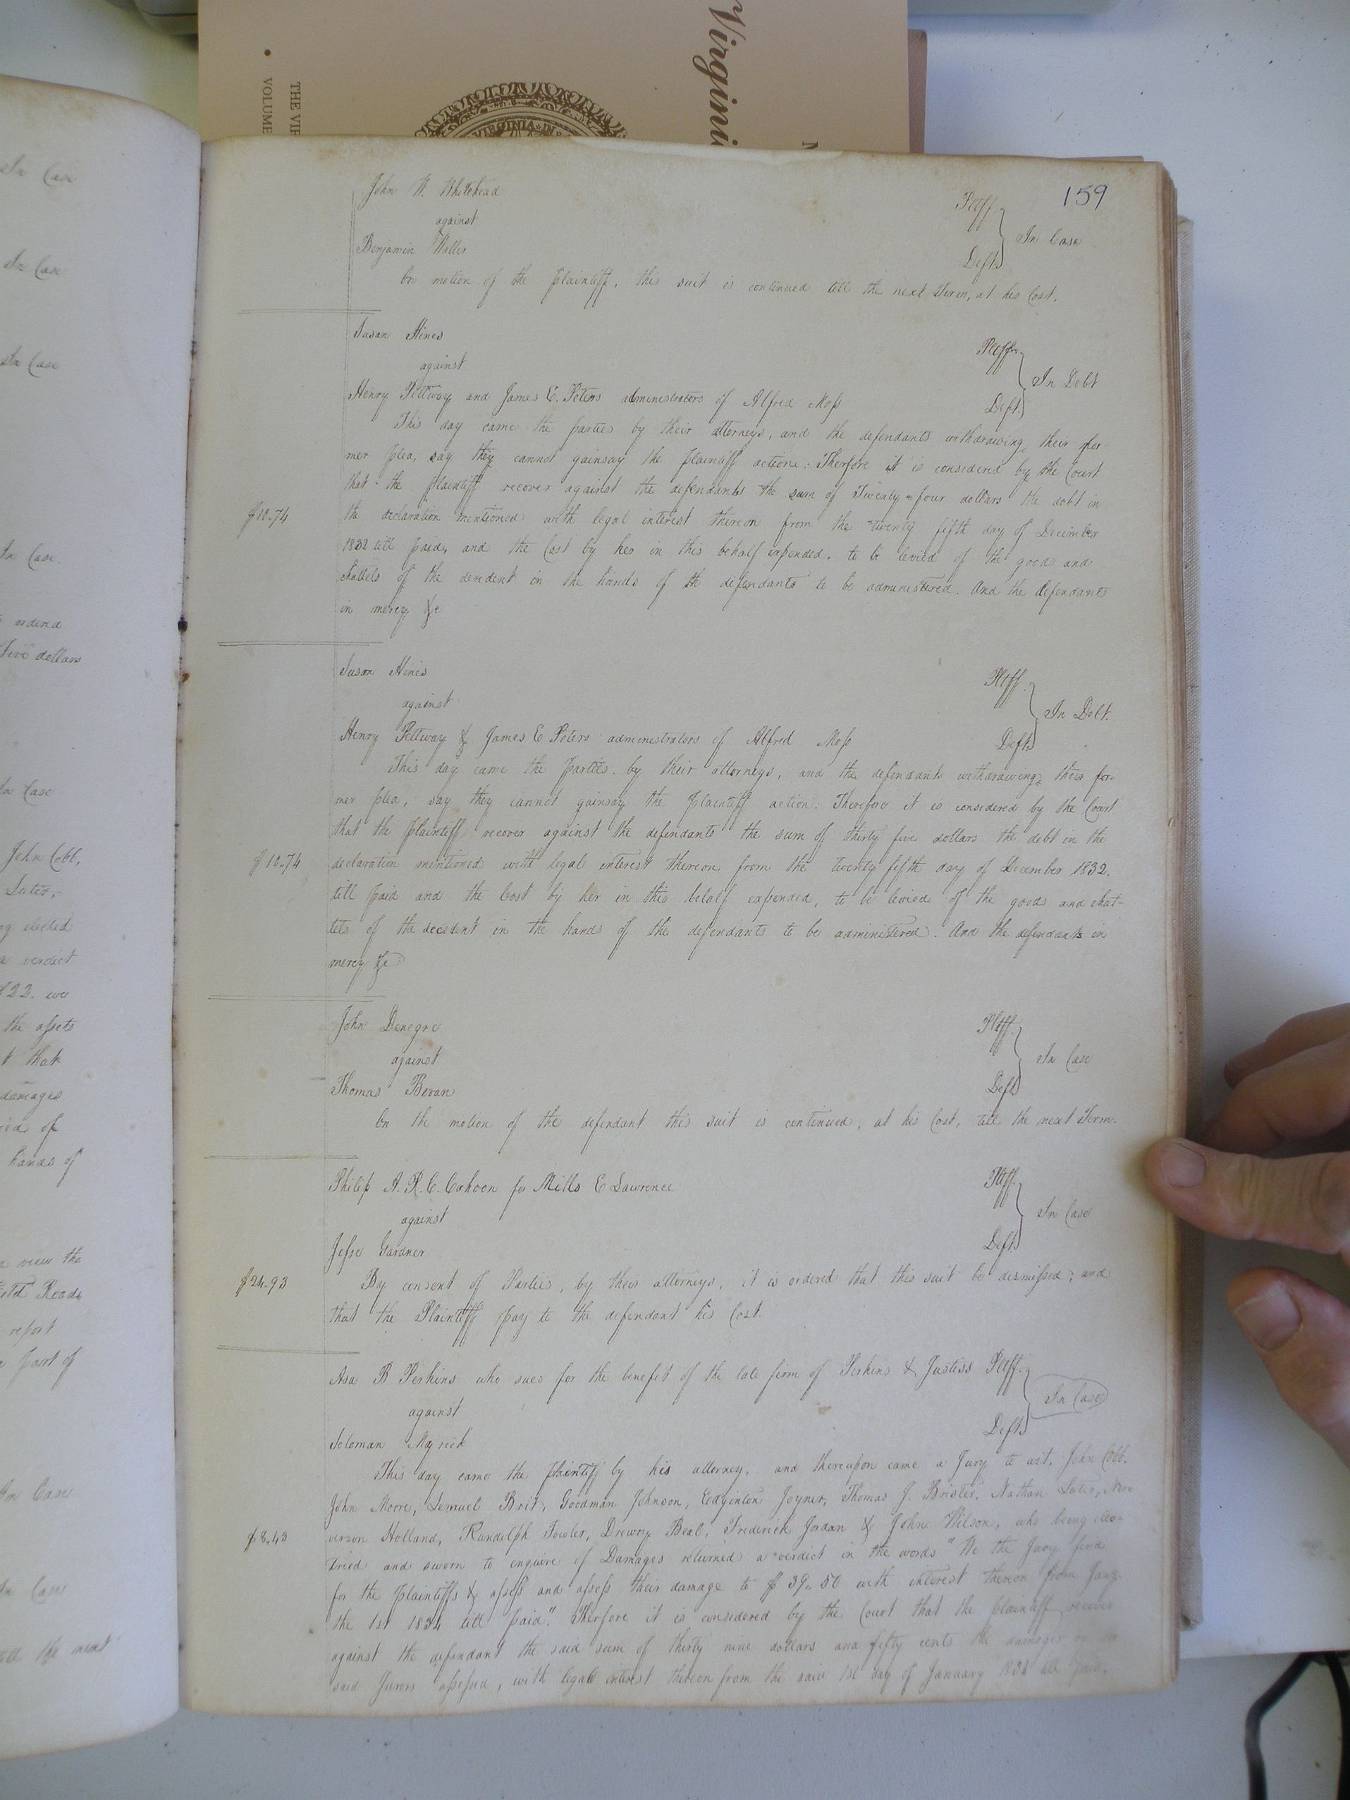 Virgini
THE VI
VOLUME
VIRGINIA IN
159
John W. Whitehead Pltff
against In Case
Benjamin Waller Deft
On motion of the plaintiff, this suit is continued till the next Term, at his Cost.
Susan Hines Pltff
against In Debt
Henry Pettway and James E. Peters administrators of Alfred Moss Defts
This day came the parties by their attorneys, and the defendants withdrawing their for
mer plea, say they cannot gainsay the plaintiff actions: Therfore it is considered by the Court
that the plaintiff recover against the defendants the sum of Twenty-four dollars the debt in
$10.74 the declaration mentioned with legal interest thereon from the twenty fifth day of December
1832 till paid, and the Cost by her in this behalf expended. to be levied of the goods and
chattels of the decedent in the hands of the defendants to be administered. And the defendants
in mercy &c
Susan Hines Pltff.
against In Debt.
Henry Pettway & James E Peters administrators of Alfred Moss Defts
This day came the Parties by their attorneys, and the defendants withdrawing their for-
mer plea, say they cannot gainsay the Plaintiff action: Therefore it is considered by the Court
that the plaintiff recover against the defendants the sum of thirty five dollars the debt in the
$10.74 declaration mentioned with legal interest thereon from the twenty fifth day of December 1832.
till paid and the Cost by her in this behalf expended, to be levied of the goods and chat-
tels of the decedent in the hands of the defendants to be administered. And the defendants in
mercy &c
John Denegre Pltff.
against In Case
Thomas Bevan Deft
On the motion of the defendant this suit is continued, at his Cost, till the next Term.
Philip A. R. C. Cohoon for Mills E Lawrence Pltff.
against In Case
Jesse Gardner Deft
$24.93 By consent of Parties, by their attorneys, it is ordered that this suit be dismissed; and
that the Plaintiff pay to the defendant his Cost.
Asa B Perkins who sues for the benefit of the late firm of Perkins & Justiss Pltff.
against In Case
Soloman Myrick Deft
This day came the plaintiff by his attorney, and thereupon came a Jury to wit, John Cobb,
John Moore, Lemuel Brit, Goodman Johnson, Edginton Joyner, Thomas J. Brister, Nathan
$8.43 Holland, Randolph Fowler, Drewry Beal, Frederick Jordan & John Wilson, who being elec-
tried and sworn to enquire of Damages returned a verdict in the words "We the Jury find
for the plaintiffs & assess and assess their damage to $39.50 with interest thereon from Jany
the 1st 1834 till paid". Therfore it is considered by the Court that the plaintiff recover
against the defendant the said sum of thirty nine dollars and fifty cents the damages
said Jurors assessed, with legal interest thereon from the said 1st day of January till paid,
In Case
In Case
In Case
In Case
ordered
Five dollars
In Case
John Cobb,
elected
verdict
the assets
that
damages
of
hands of
view the
Road
report
part of
In Case
In Case
till the next